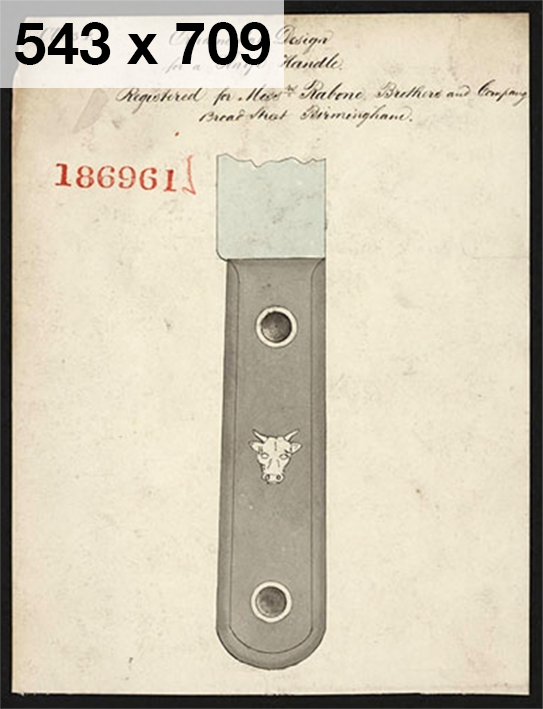 543 x 709
Design
for a Knife Handle.
Registered for Messrs Rabone, Brothers and Company
Broad Street Birmingham.
186961